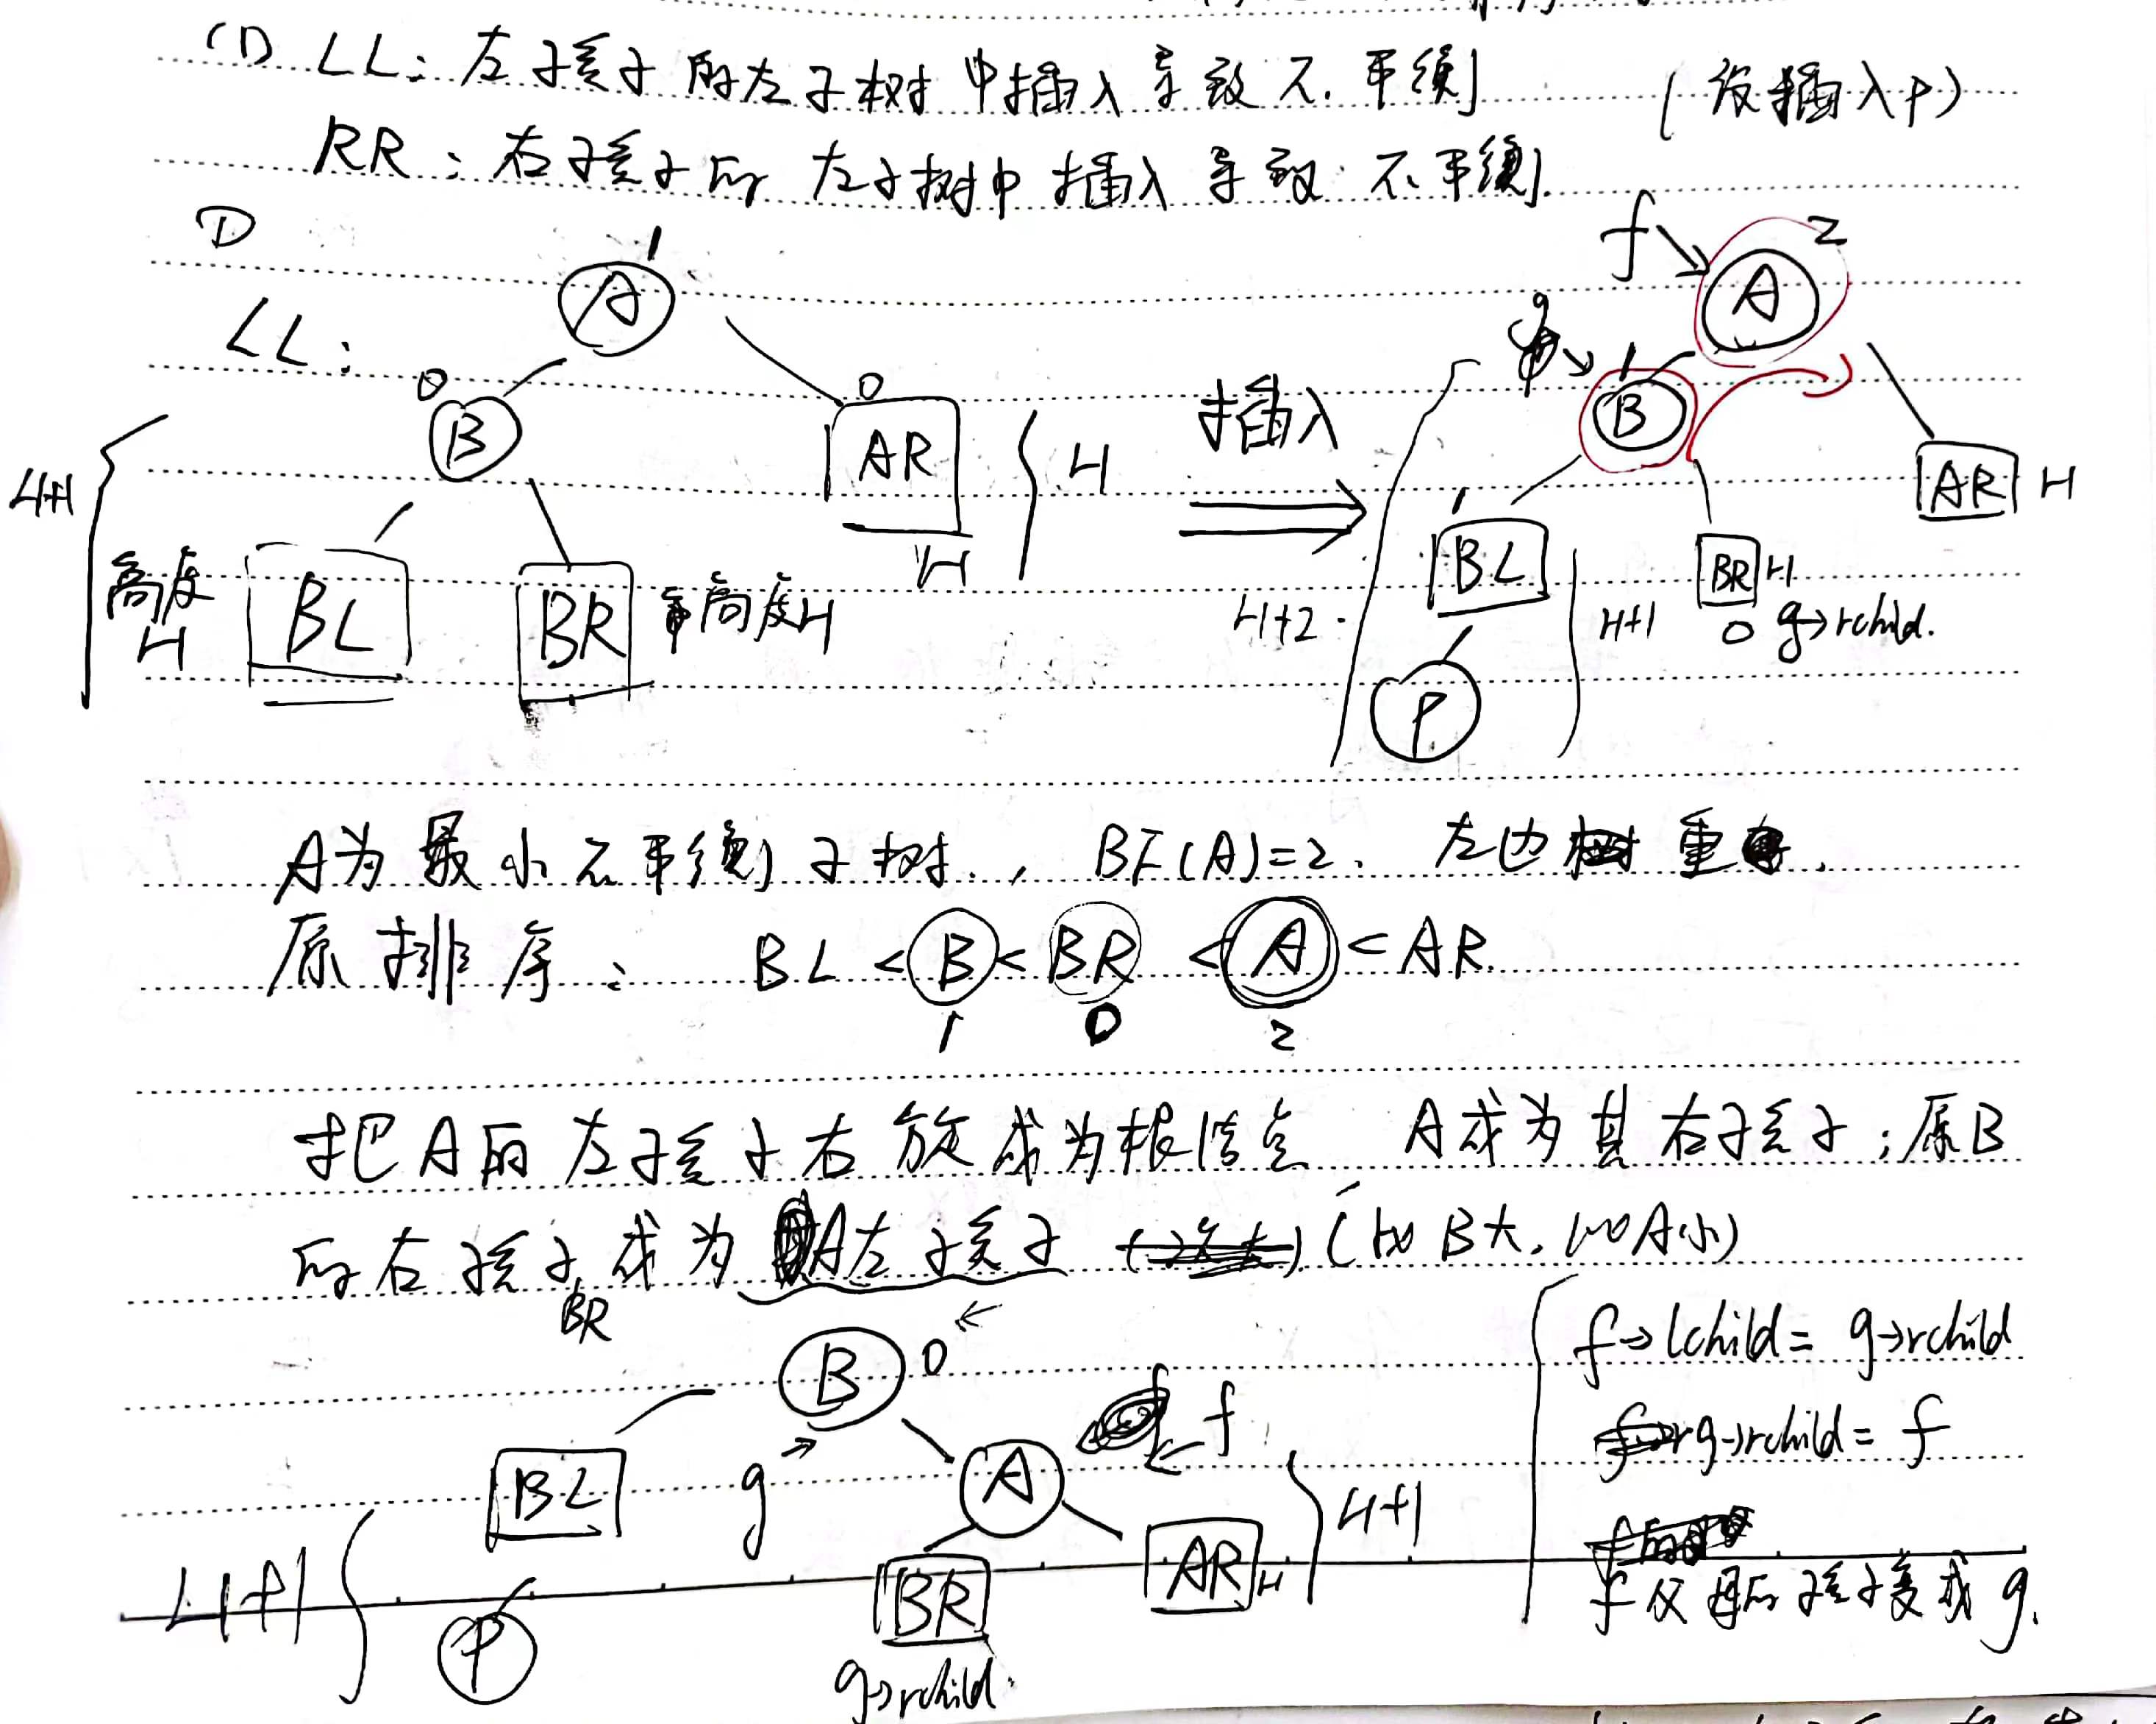 (1) LL: 左孩子的左子树中插入导致不平衡 (设插入P)
RR: 右孩子的左子树中插入导致不平衡.
①
LL:
A 1
B 0
AR 0
H
H
H+1
高度H
BL
BR
高度H
插入
f
A 2
g
B 1
AR H
BL 1
BR H
0 g→rchild.
H+2
H+1
P
A为最小不平衡子树, BF(A)=2. 左边重.
原排序: BL < B < BR < A < AR.
1 0 2
把A的左孩子右旋成为根结点 A成为其右孩子; 原B
的右孩子成为A左孩子 (比B大, 比A小)
BR
B 0
g
f
A
BL
BR
AR H
P
H+1
H+1
g→rchild.
f→lchild = g→rchild
g→rchild = f
f父母的孩子变成g.